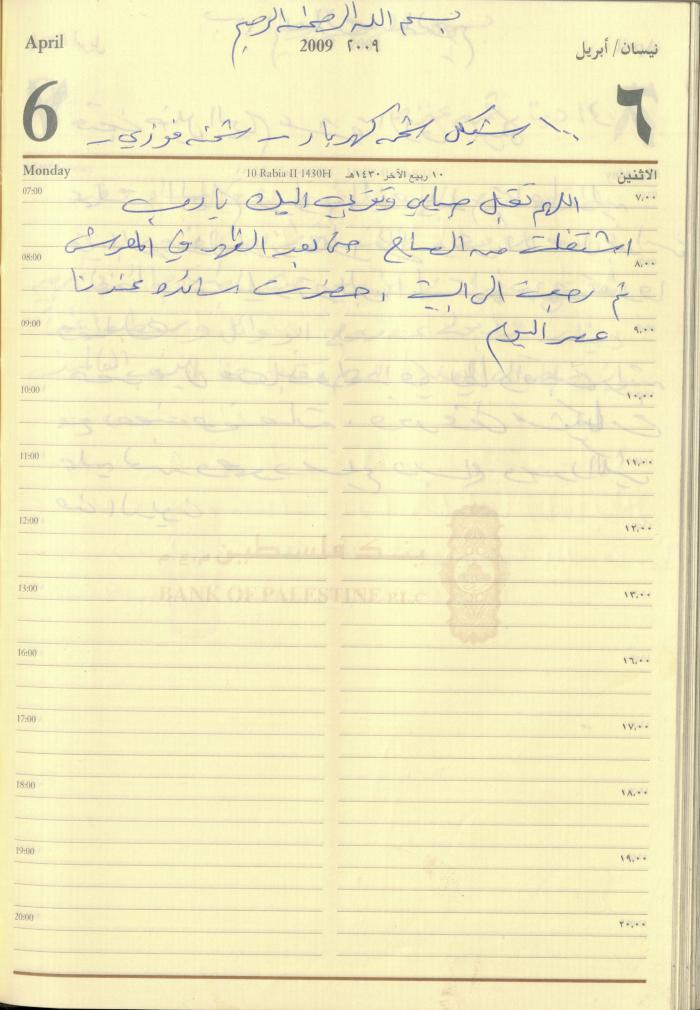 بسم الله الرحمن الرحيم
April 2009 ٢٠٠٩ نيسان/ أبريل
6 ٦
١٠٠ شيكل شحن كهرباء - شحنه فوزي -
Monday 10 Rabia II 1430H ١٠ ربيع الآخر ١٤٣٠هـ الاثنين
07:00 ٧,٠٠
اللهم تقبل صيامي وتقربي اليك يا رب
اشتغلت من الصباح حتى بعد الظهر في
08:00 ٨,٠٠
ثم رجعت الى البيت . حضرت عندنا
09:00 ٩,٠٠
عصر اليوم
10:00 ١٠,٠٠
11:00 ١١,٠٠
12:00 ١٢,٠٠
بنك فلسطين م.ع.م
BANK OF PALESTINE P.L.C
13:00 ١٣,٠٠
16:00 ١٦,٠٠
17:00 ١٧,٠٠
18:00 ١٨,٠٠
19:00 ١٩,٠٠
20:00 ٢٠,٠٠